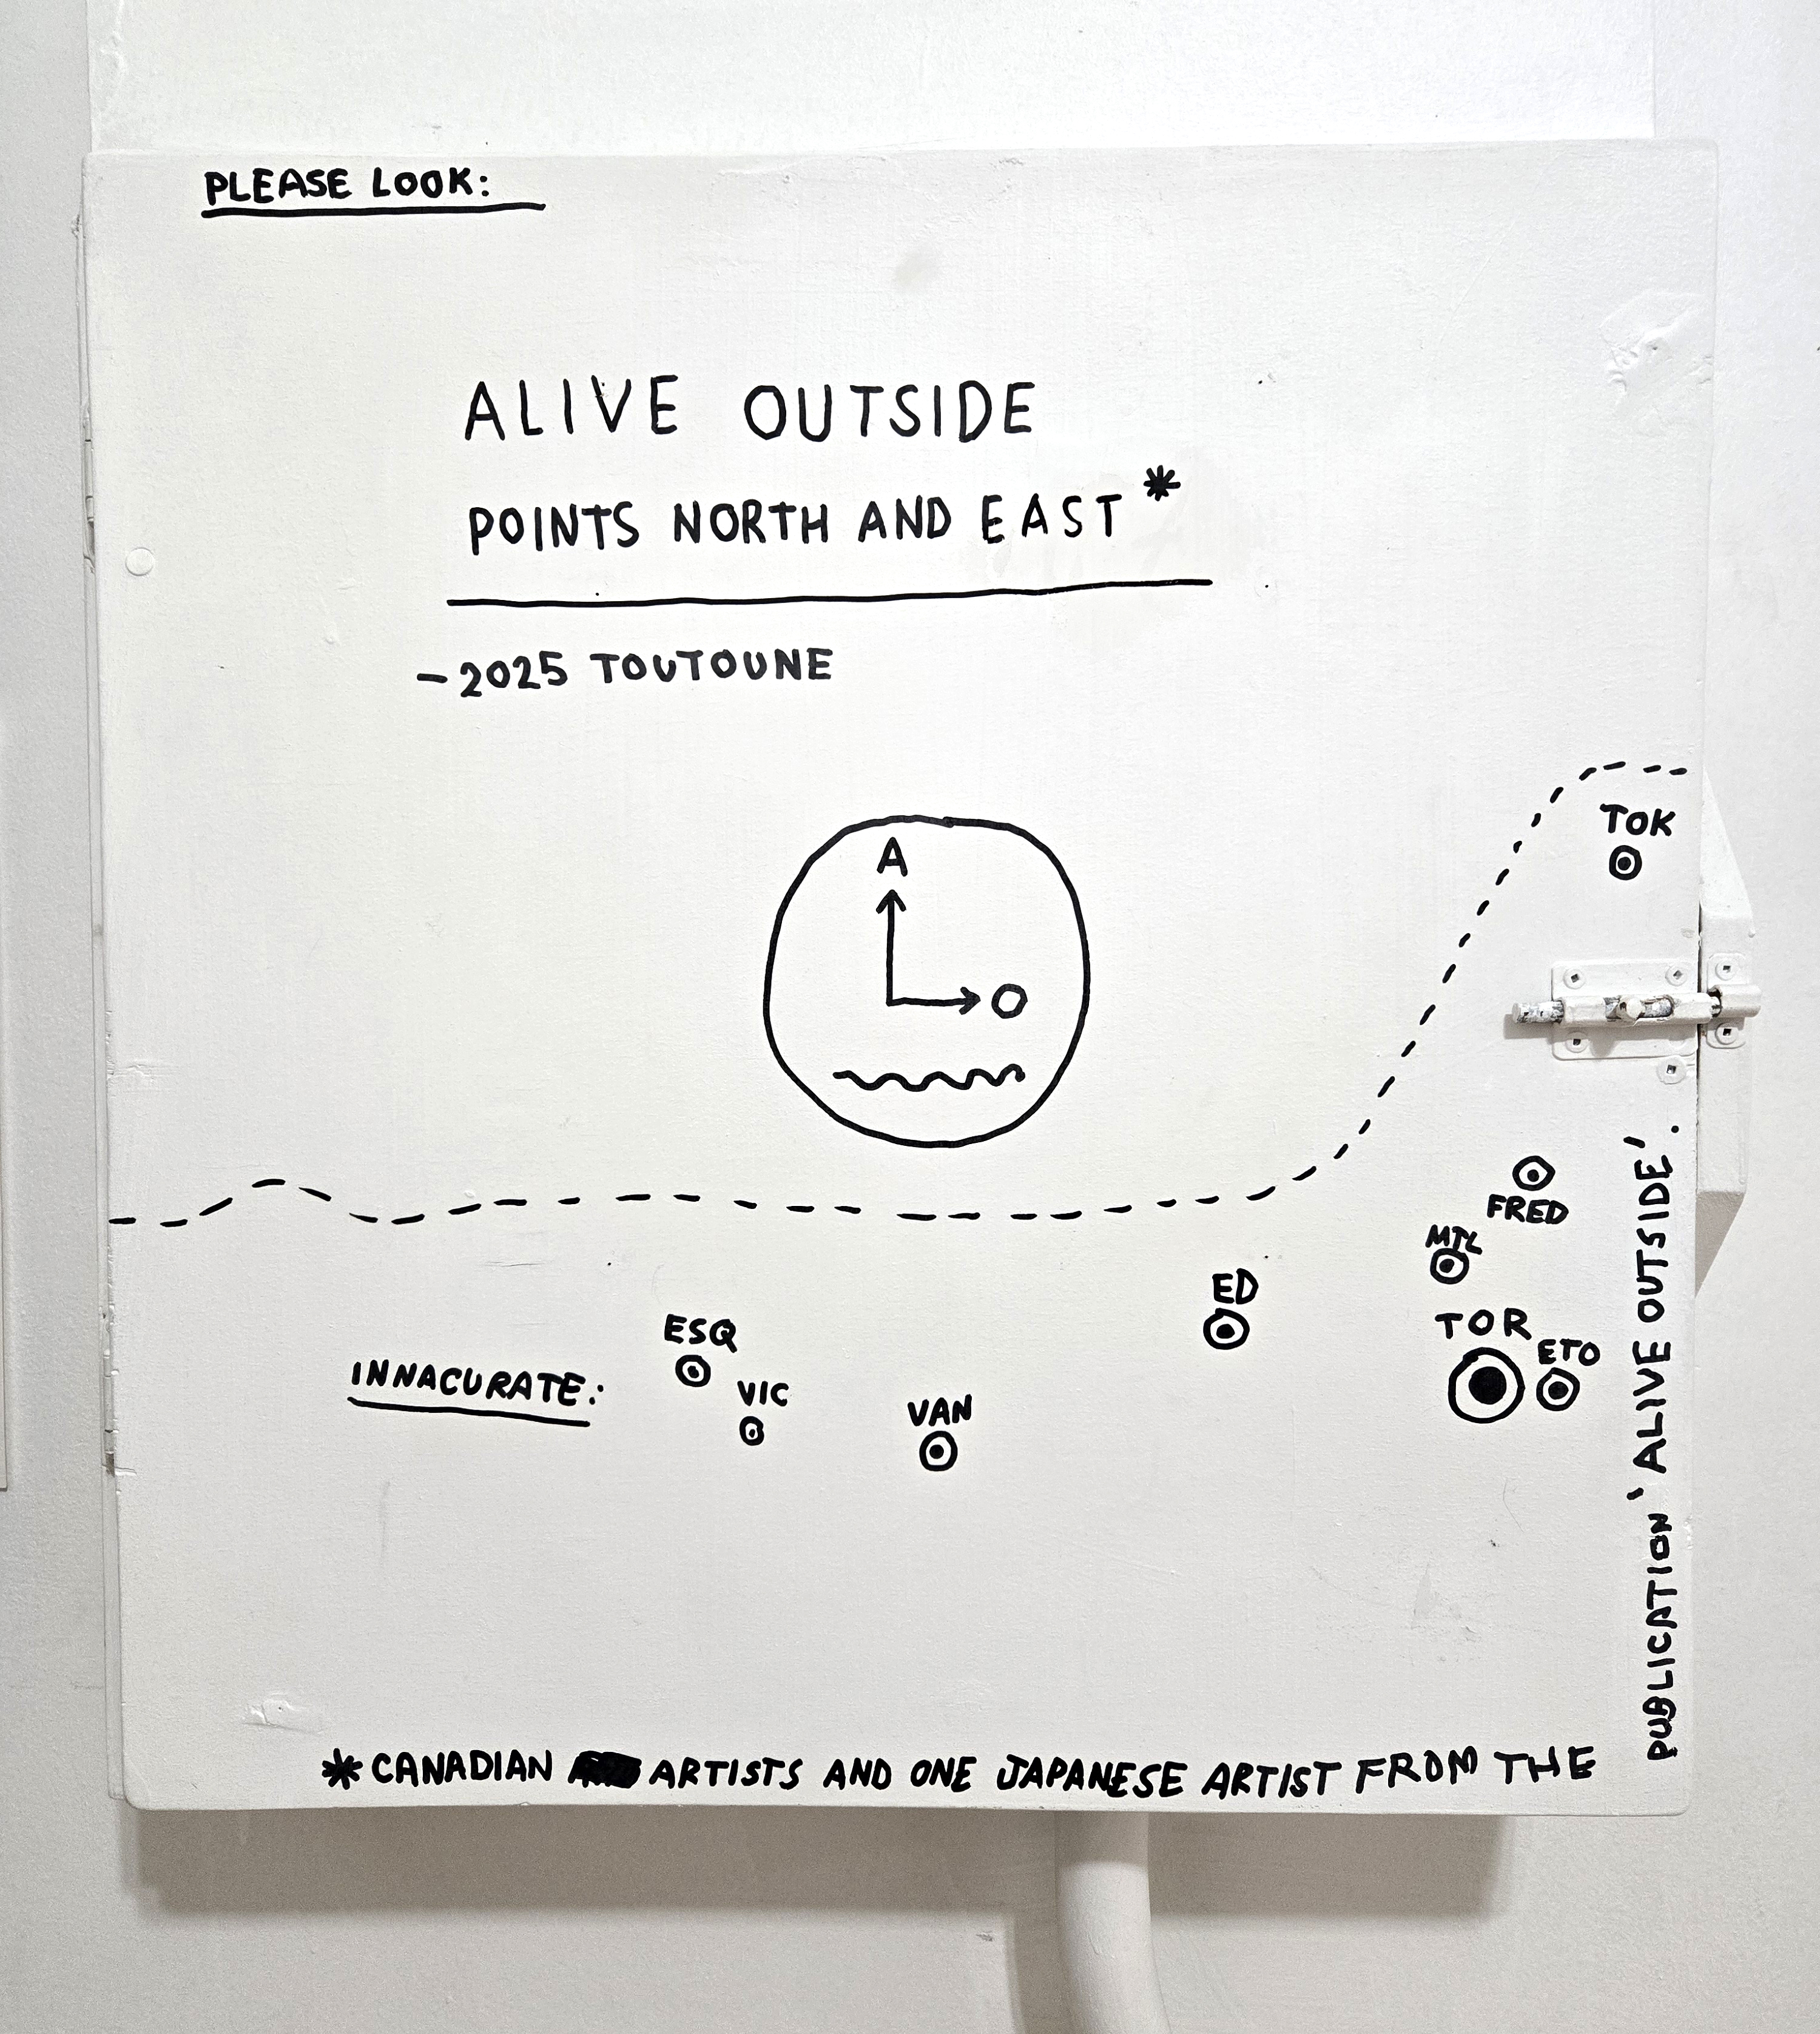 PLEASE LOOK:
ALIVE OUTSIDE
POINTS NORTH AND EAST*
-2025 TOUTOUNE
A
O
TOK
FRED
MTL
ED
TOR
ETO
ESQ
INNACURATE:
VIC
VAN
*CANADIAN ARTISTS AND ONE JAPANESE ARTIST FROM THE
PUBLICATION 'ALIVE OUTSIDE'.